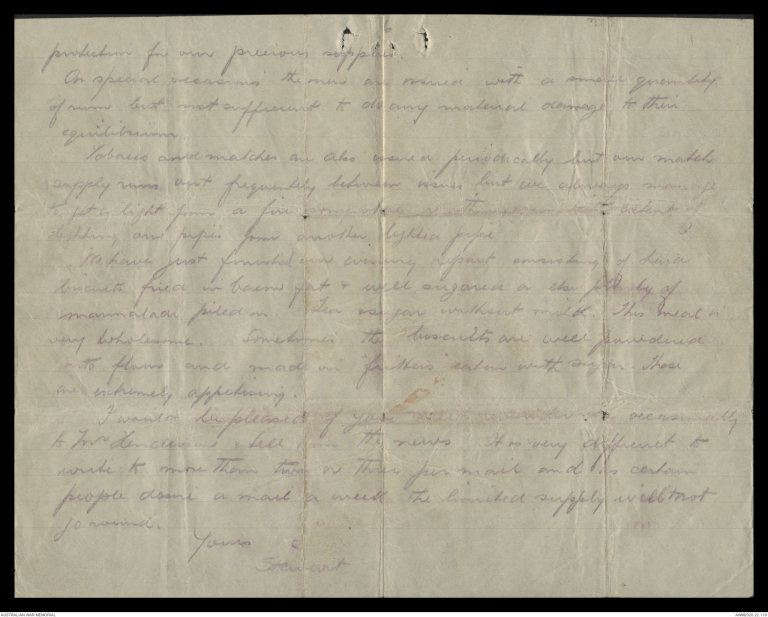 protection for our precious supplies.
On special occasions the men are issued with a small quantity
of rum but not sufficient to do any material damage to their
equilibrium.
Tobacco and matches are also issued periodically but our match
supply runs out frequently between issues but we always manage
to get a light from a fire or to extent of
lighting our pipes from another lighted pipe
We have just finished our evening repast consisting of hard
biscuits fried in bacon fat & well sugared or else plenty of
marmalade piled on. Tea sugar without milk. This meal is
very wholesome. Sometimes the biscuits are well powdered
into flour and made in fritters eaten with sugar. These
are extremely appetising.
I would be pleased if you occasionally
to Mrs Henderson & tell the news. It is very difficult to
write to more than two or three per mail and as certain
people desire a mail a week the limited supply will not
go round.
Yours
Stewart
AUSTRALIAN WAR MEMORIAL